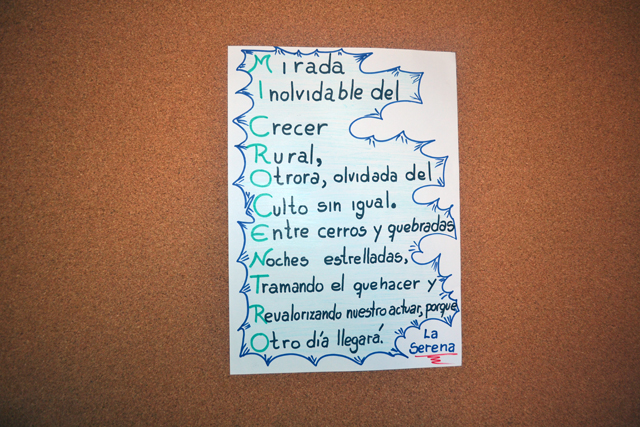 Mirada
Inolvidable del
Crecer
Rural,
Otrora, olvidada del
Culto sin igual.
Entre cerros y quebradas
Noches estrelladas,
Tramando el quehacer y
Revalorizando nuestro actuar, porque
Otro día llegará!
La
Serena